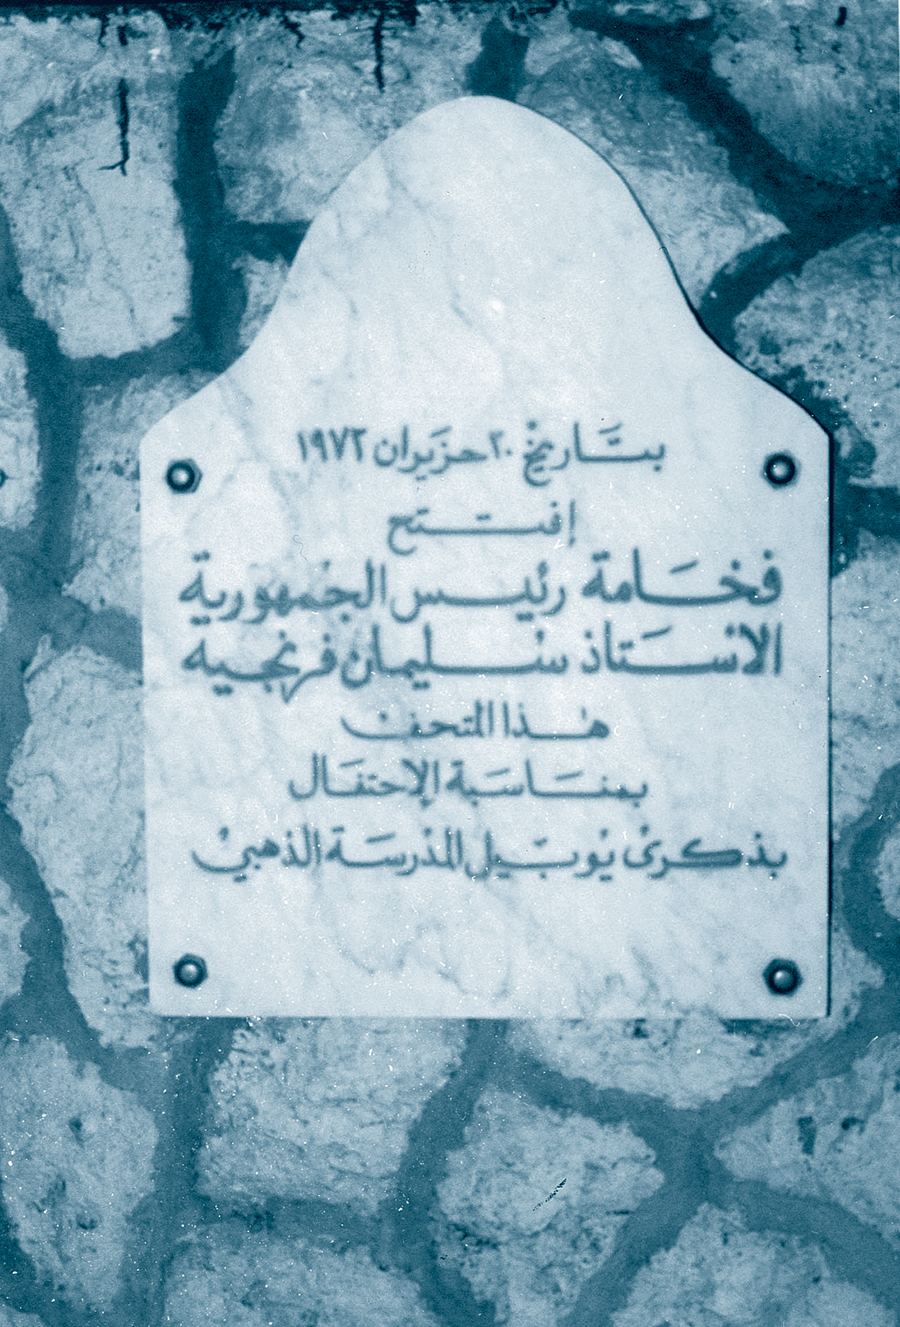 بتاريخ ٢٠ حزيران ١٩٧٢
إفتتح
فخامة رئيس الجمهورية
الاستاذ سليمان فرنجيه
هذا المتحف
بمناسبة الإحتفال
بذكرى يوبيل المدرسة الذهبي